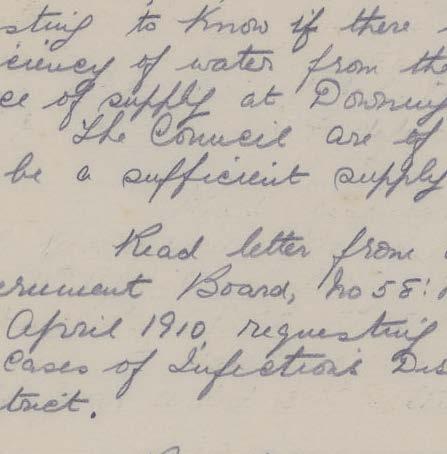 sting to know if there
iciency of water from the
ce of supply at Downing
The Council are of
be a sufficient supply
Read letter from
ernment Board, No 58:
April 1910 requesting
Cases of Infectious Dis
trict.